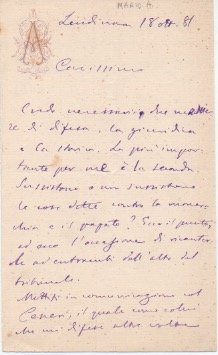 MARIO A.
Lendinara 18 ott. 81
Carissimo
Credo necessarie due
re di difesa. La giuridica
e la storica. La più impor-
tante per me è la seconda.
Sussistono o non sussistono
le cose dette contro la monar-
chia e il papato? Ecco il punto,
ed ecco l'occasione di ricantar-
le ad entrambi dall'alto del
tribunale.
Mettiti in comunicazione col
Ceneri, il quale come colui
che mi difese altra volta